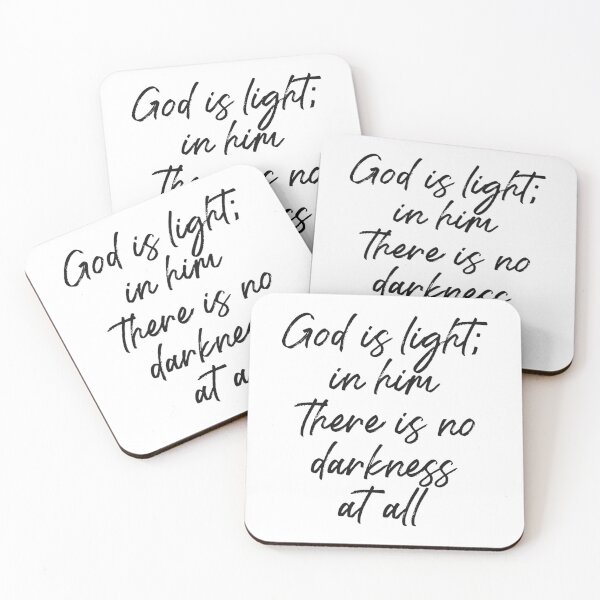 God is light;
in him
no
God is light;
in him
There is no
darkness
God is light;
in him
There is no
at
God is light;
in him
There is no
darkness
at all